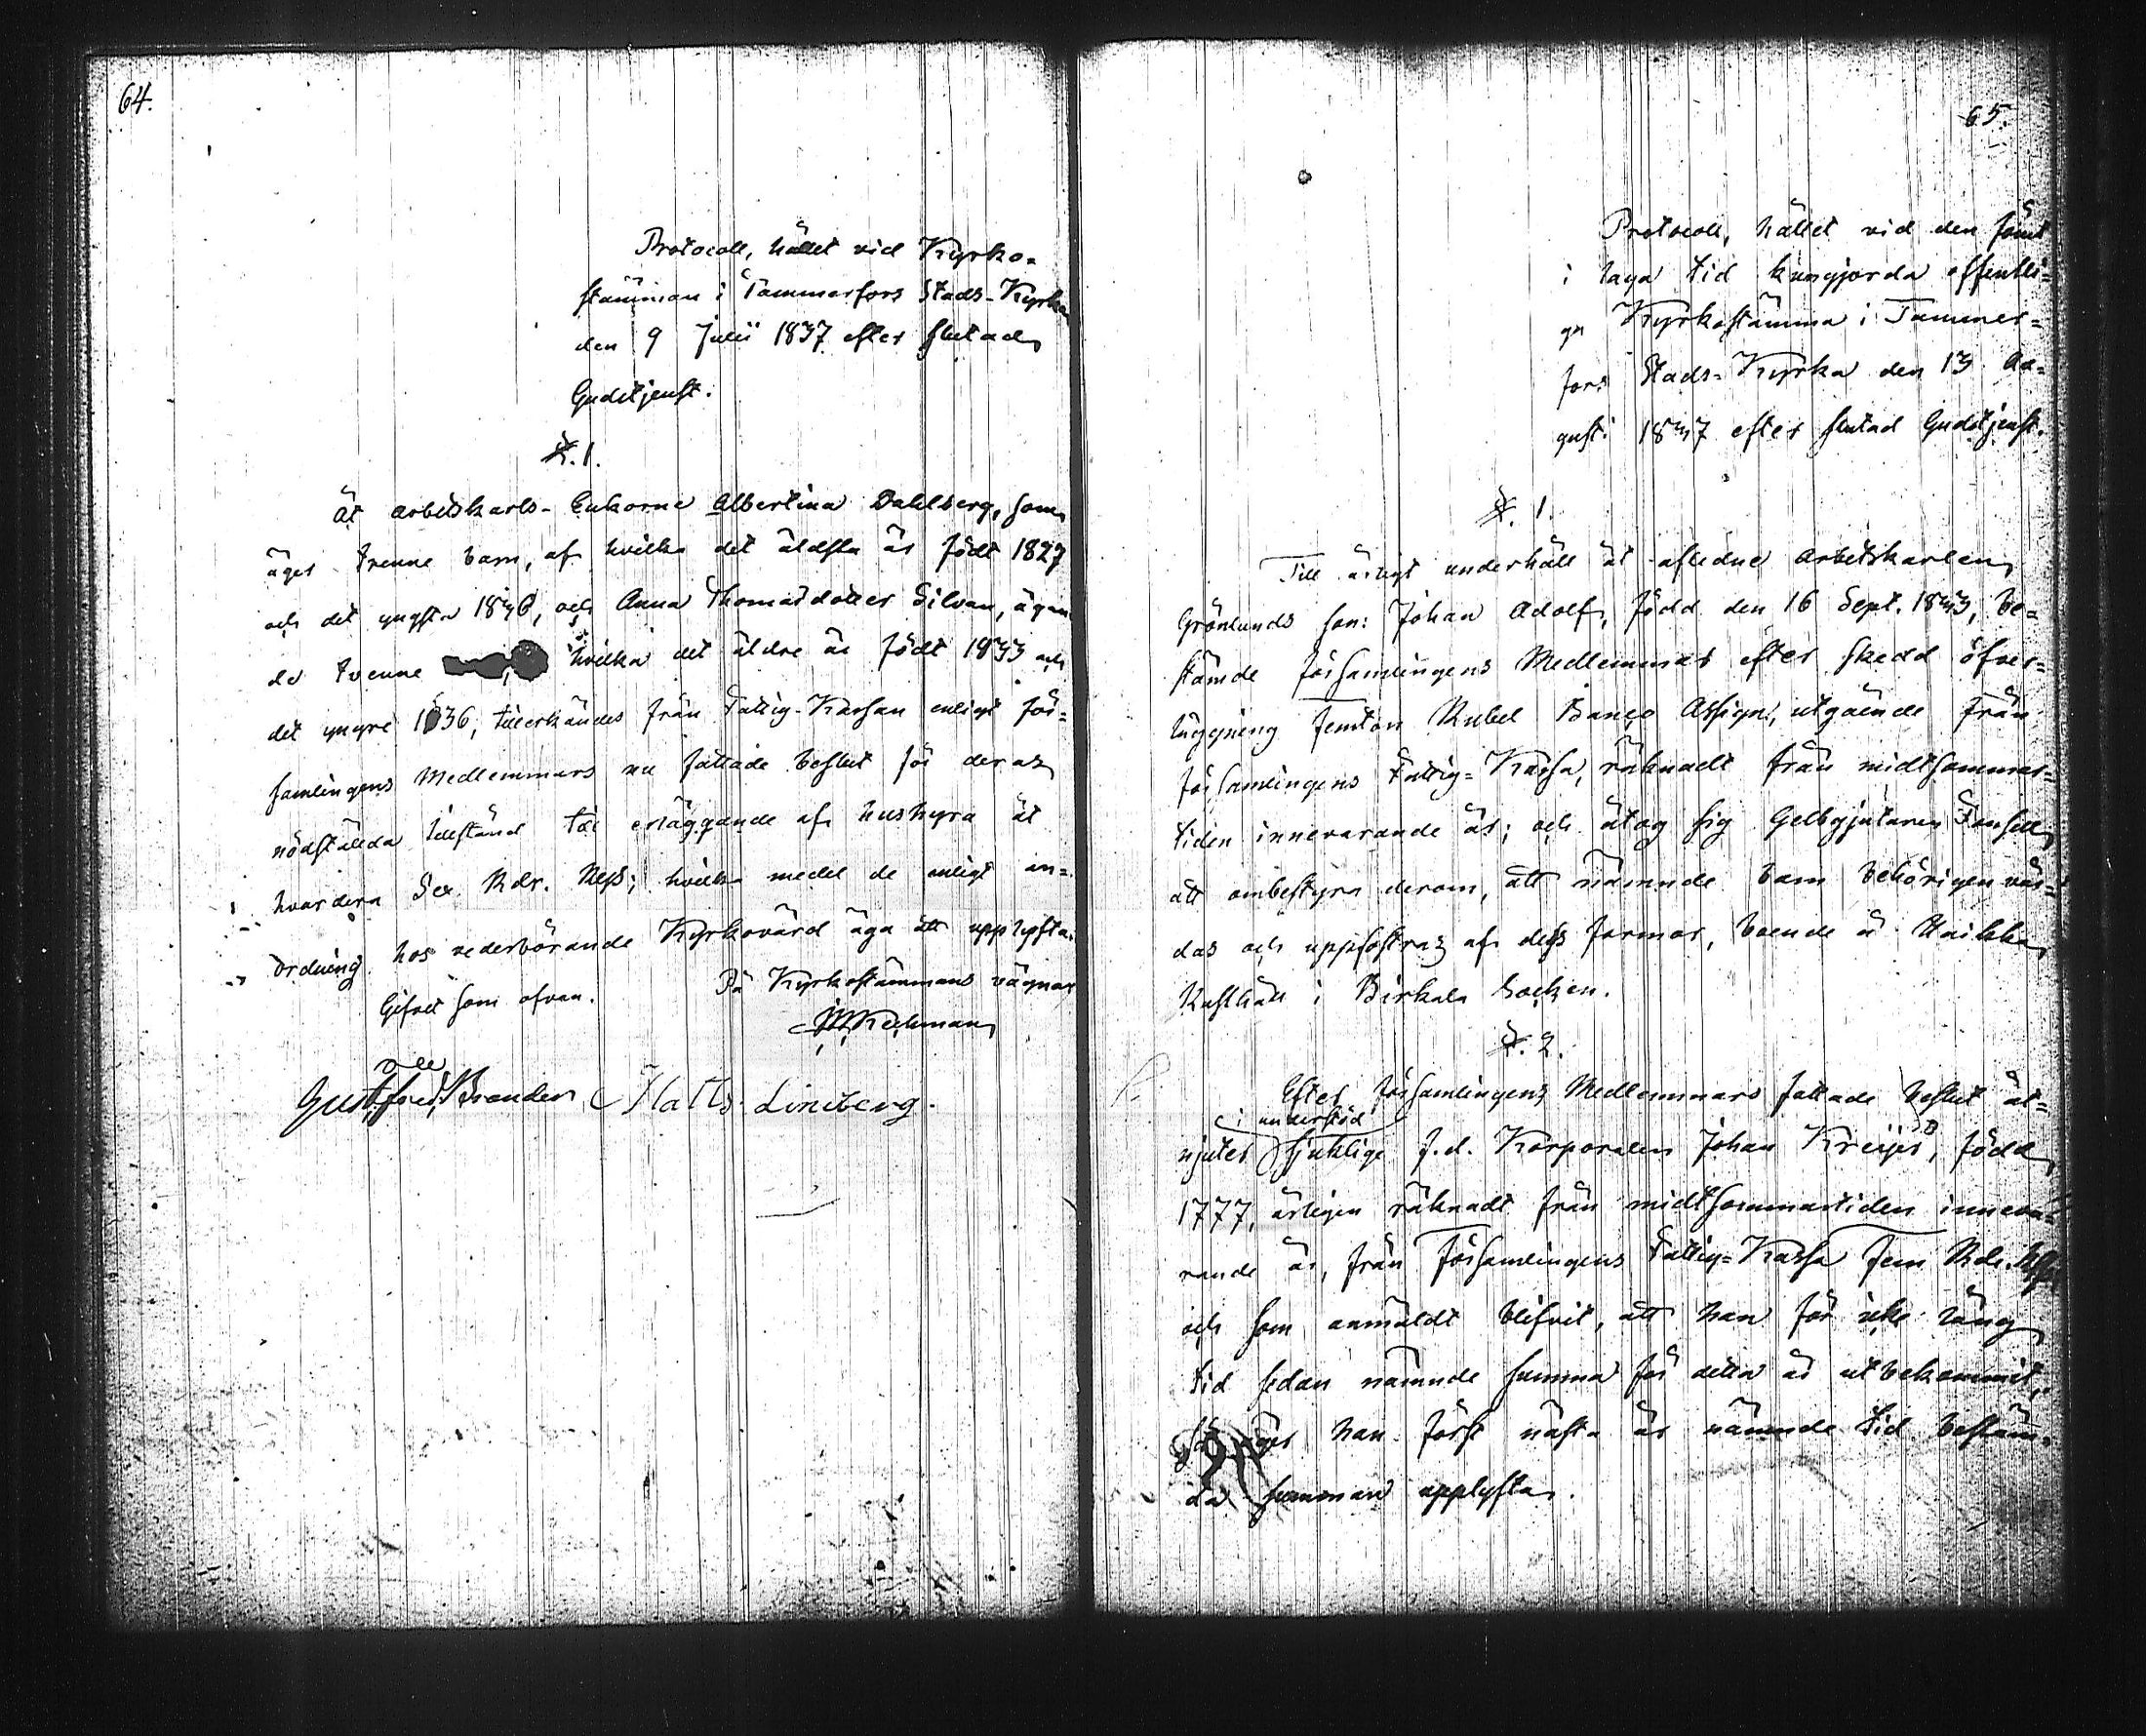 64.
Protocoll, hållet vid Kyrko-
stämman i Tammerfors Stads-Kyrka
den 9 Julii 1837 efter slutad
Gudstjenst.
§. 1.
Åt arbetskarls-Enkorne Albertina Dahlberg, som
äger trenne barn, af hvilka det äldsta är födt 1827
och det yngsta 1836, och Anna Thomasdotter Silvan, ägan
de tvenne hvilka det äldre är födt 1833 och
det yngre 1836, tillerkändes från Fattig-Kassan enligt För-
samlingens Medlemmars nu fattade beslut för deras
nödställda tillstånd till erläggande af hushyra åt
hvardera Sex Rdr. Rgs; hvilka medel de enligt an-
ordning hos vederbörande Kyrkovärd äga att upplyfta.
Gifvet som ofvan. På Kyrkostämmans vägnar
Gust. Brander Matts Lineberg.
65.
Protocoll, hållet vid den förut
i laga tid kungjorda offentli-
ga Kyrkostämma i Tammer-
fors Stads-Kyrka den 13 Au-
gusti 1837 efter slutad Gudstjenst.
§. 1.
Till årligt underhåll åt aflidne arbetskarlen
Grönlunds son: Johan Adolf, född den 16 Sept. 1833, be-
stämde Församlingens Medlemmar efter skedd öfver-
läggning femton Rubel Banco Assign., utgående från
Församlingens Fattig-Kassa, räknadt från midtsommar-
tiden innevarande år; och åtog sig Gelbgjutaren
att ombestyra derom, att nämnde barn behörigen vår-
das och uppfostras af dess farmor, boende å Haikka
Rusthåll i Birkala Socken.
§. 2.
Efter Församlingens Medlemmars fattade beslut åt-
i understöd
njuter sjuklige f.d. Korporalen Johan Kreijs, född
1777, årligen räknadt från midtsommartiden inneva-
rande år, från Församlingens Fattig-Kassa fem Rdr. Rgs
och som anmäldt blifvit, att han för icke lång
tid sedan nämnde summa för detta år utbekommit,
så äger han först nästa år nämnde tid bestäm-
da summan upplyfta.